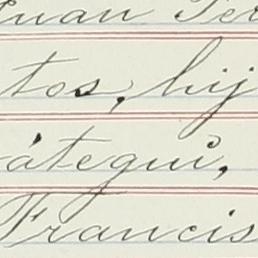 Juan Fer
tos, hij
átegui,
Francis